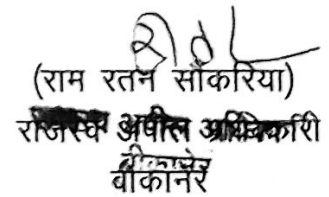 (राम रतन सौकरिया)
राजस्व अपील अधिकारी
बीकानेर
बीकानेर